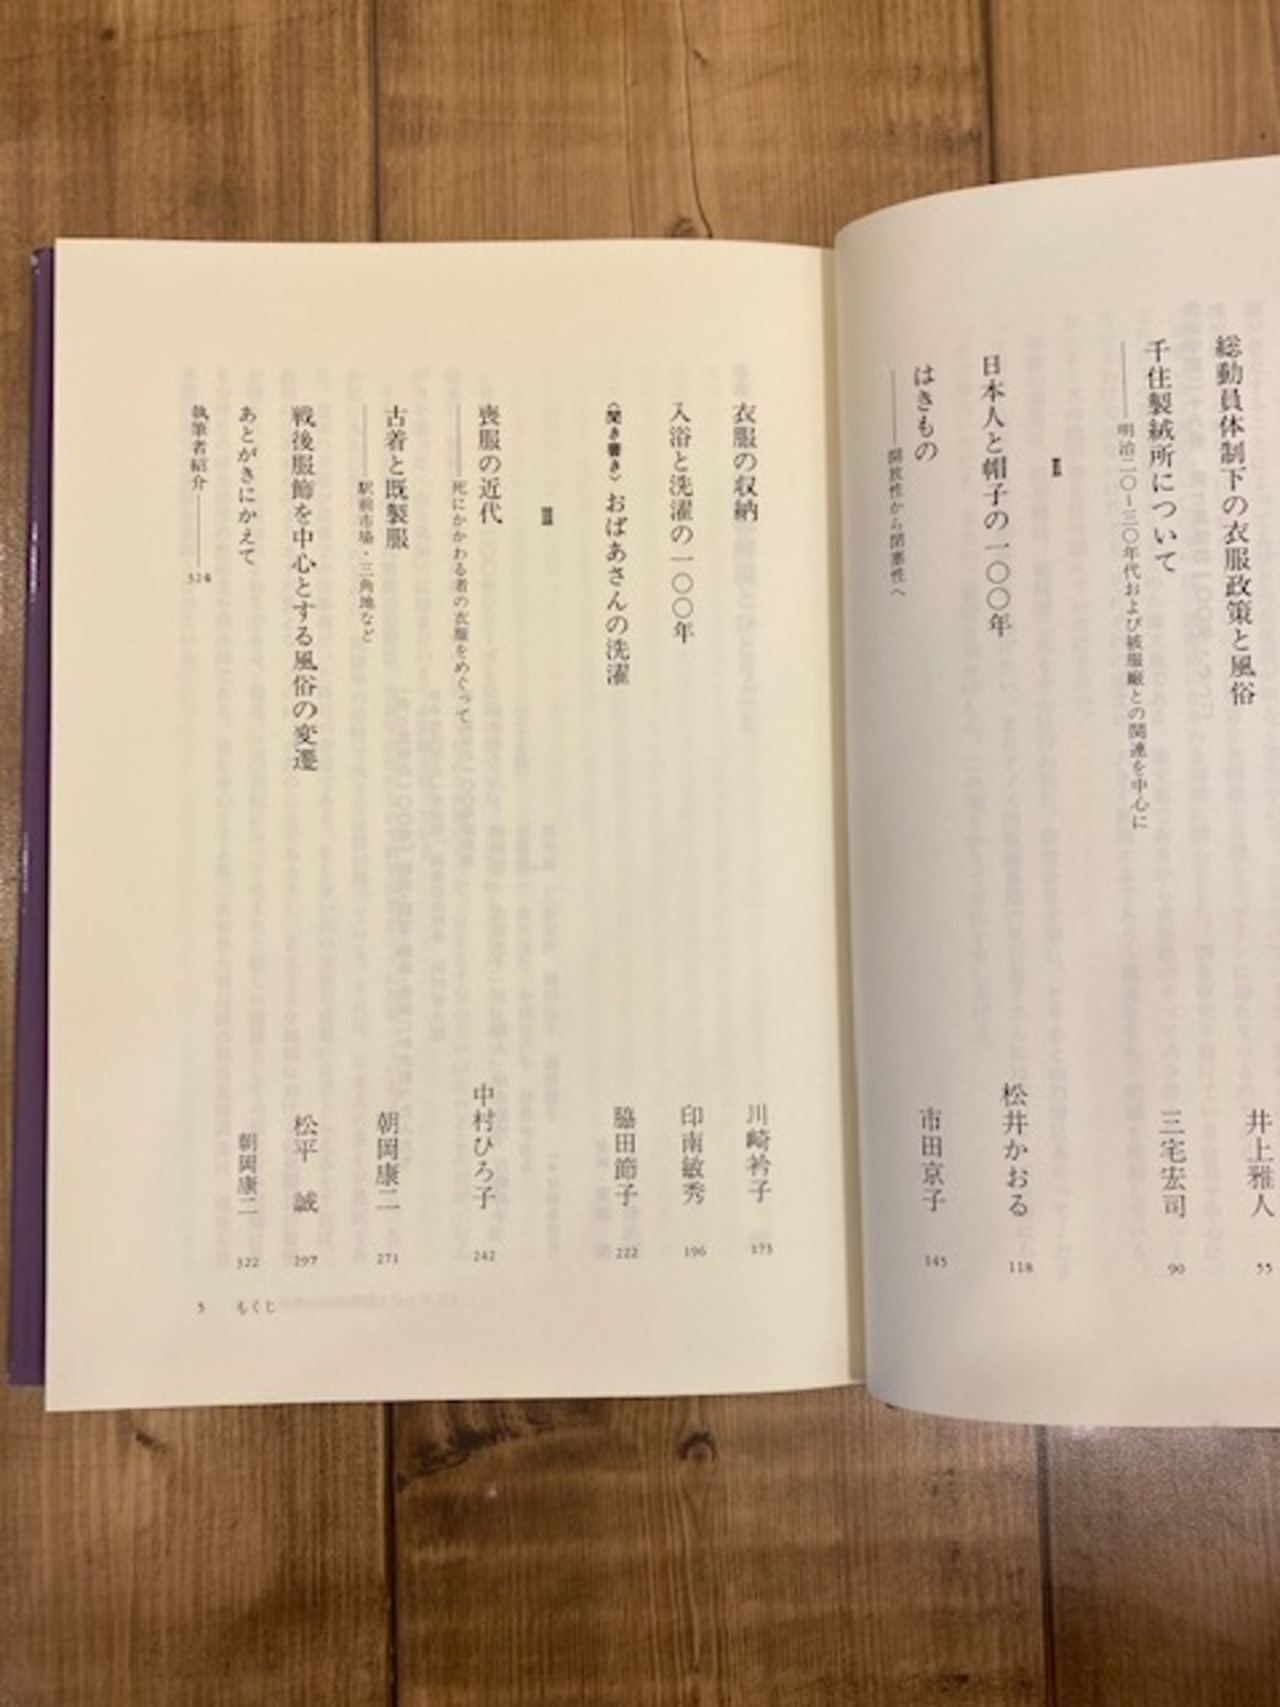 総動員体制下の衣服政策と風俗 井上雅人 55
千住製絨所について 三宅宏司 90
――明治二〇～三〇年代および被服廠との関連を中心に
II
日本人と帽子の一〇〇年 松井かおる 118
はきもの 市田京子 145
――開放性から閉塞性へ
衣服の収納 川崎衿子 173
入浴と洗濯の一〇〇年 印南敏秀 196
〈聞き書き〉おばあさんの洗濯 脇田節子 222
III
喪服の近代 中村ひろ子 242
――死にかかわる者の衣服をめぐって
古着と既製服 朝岡康二 271
――駅前市場・三角地など
戦後服飾を中心とする風俗の変遷 松平 誠 297
あとがきにかえて 朝岡康二 322
執筆者紹介――324
5 もくじ